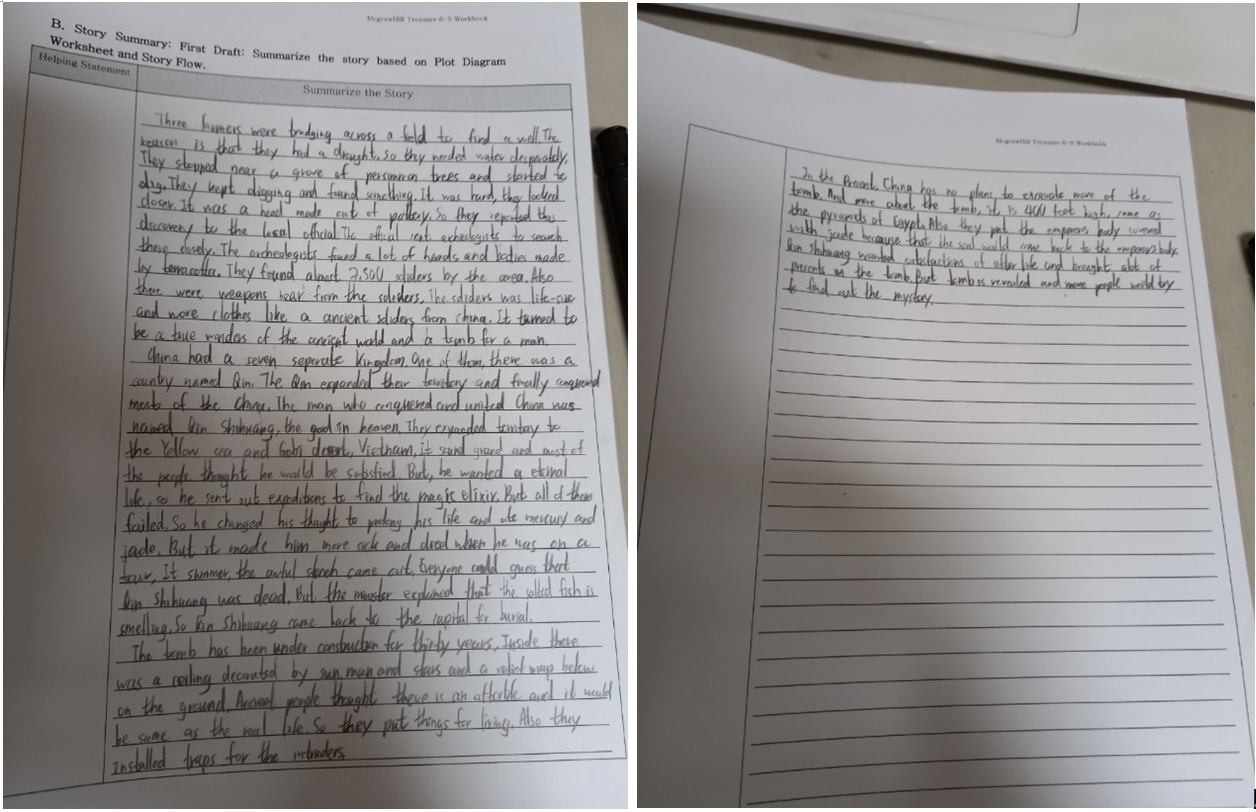 Mcgrawhill Treasure 6-9 Workbook
B. Story Summary: First Draft: Summarize the story based on Plot Diagram
Worksheet and Story Flow.
Helping Statement
Summarize the Story
Three farmers were trudging across a field to find a well. The
reason is that they had a drought. So they needed water desperately.
They stopped near a grove of persimmon trees and started to
dig. They kept digging and found something. It was hard, they looked
closer. It was a head made out of pottery. So they reported this
discovery to the local official. The offical sent archeologists to search
there closely. The archeologists found a lot of heads and bodies made
by terracotta. They found almost 7,500 soliders by the area. Also
there were weapons near form the soliders. The soliders was life-size
and wore clothes like a ancient soliders from China. It turned to
be a true wonders of the ancient world and a tomb for a man.
China had a seven separate kingdom. One of them, there was a
country named Qin. The Qin expanded their territory and finally conquered
most of the China. The man who conquered and united China was
named Qin Shihuang, the god in heaven. They expanded territory to
the Yellow sea and Gobi desert, Vietnam, it sound grand and most of
the people thought he would be But, he wanted a eternal
life, so he sent out expeditions to find the magic elixir. But all of them
failed. So he changed his thought to prolong his life and ate mercury and
jade. But it made him more sick and died when he was on a
tour, It summer, the awful stench came out. Everyone could guess that
Qin Shihuang was dead. But the explained that the salted fish is
smelling. So Qin Shihuang came back to the capital for burial.
The tomb has been under construction for thirty years, Inside there
was a ceiling decorated by sun, moon and stars and a relief map below
on the ground. Ancient people thought there is an afterlife and it would
be same as the real life. So they put things for living. Also they
installed traps for the intruders.
Mcgrawhill Treasure 6-9 Workbook
In the Present, China has no plans to excavate more of the
tomb. And more about the tomb, it is 400 feet high, same as
the pyramids of Egypt. Also they put the emperors body covered
with jade because that the soul would come back to the emperor's body.
Qin Shihuang wanted of after life and brought of
presents in the tomb. But tomb is revealed and more people would try
to find out the mystery.